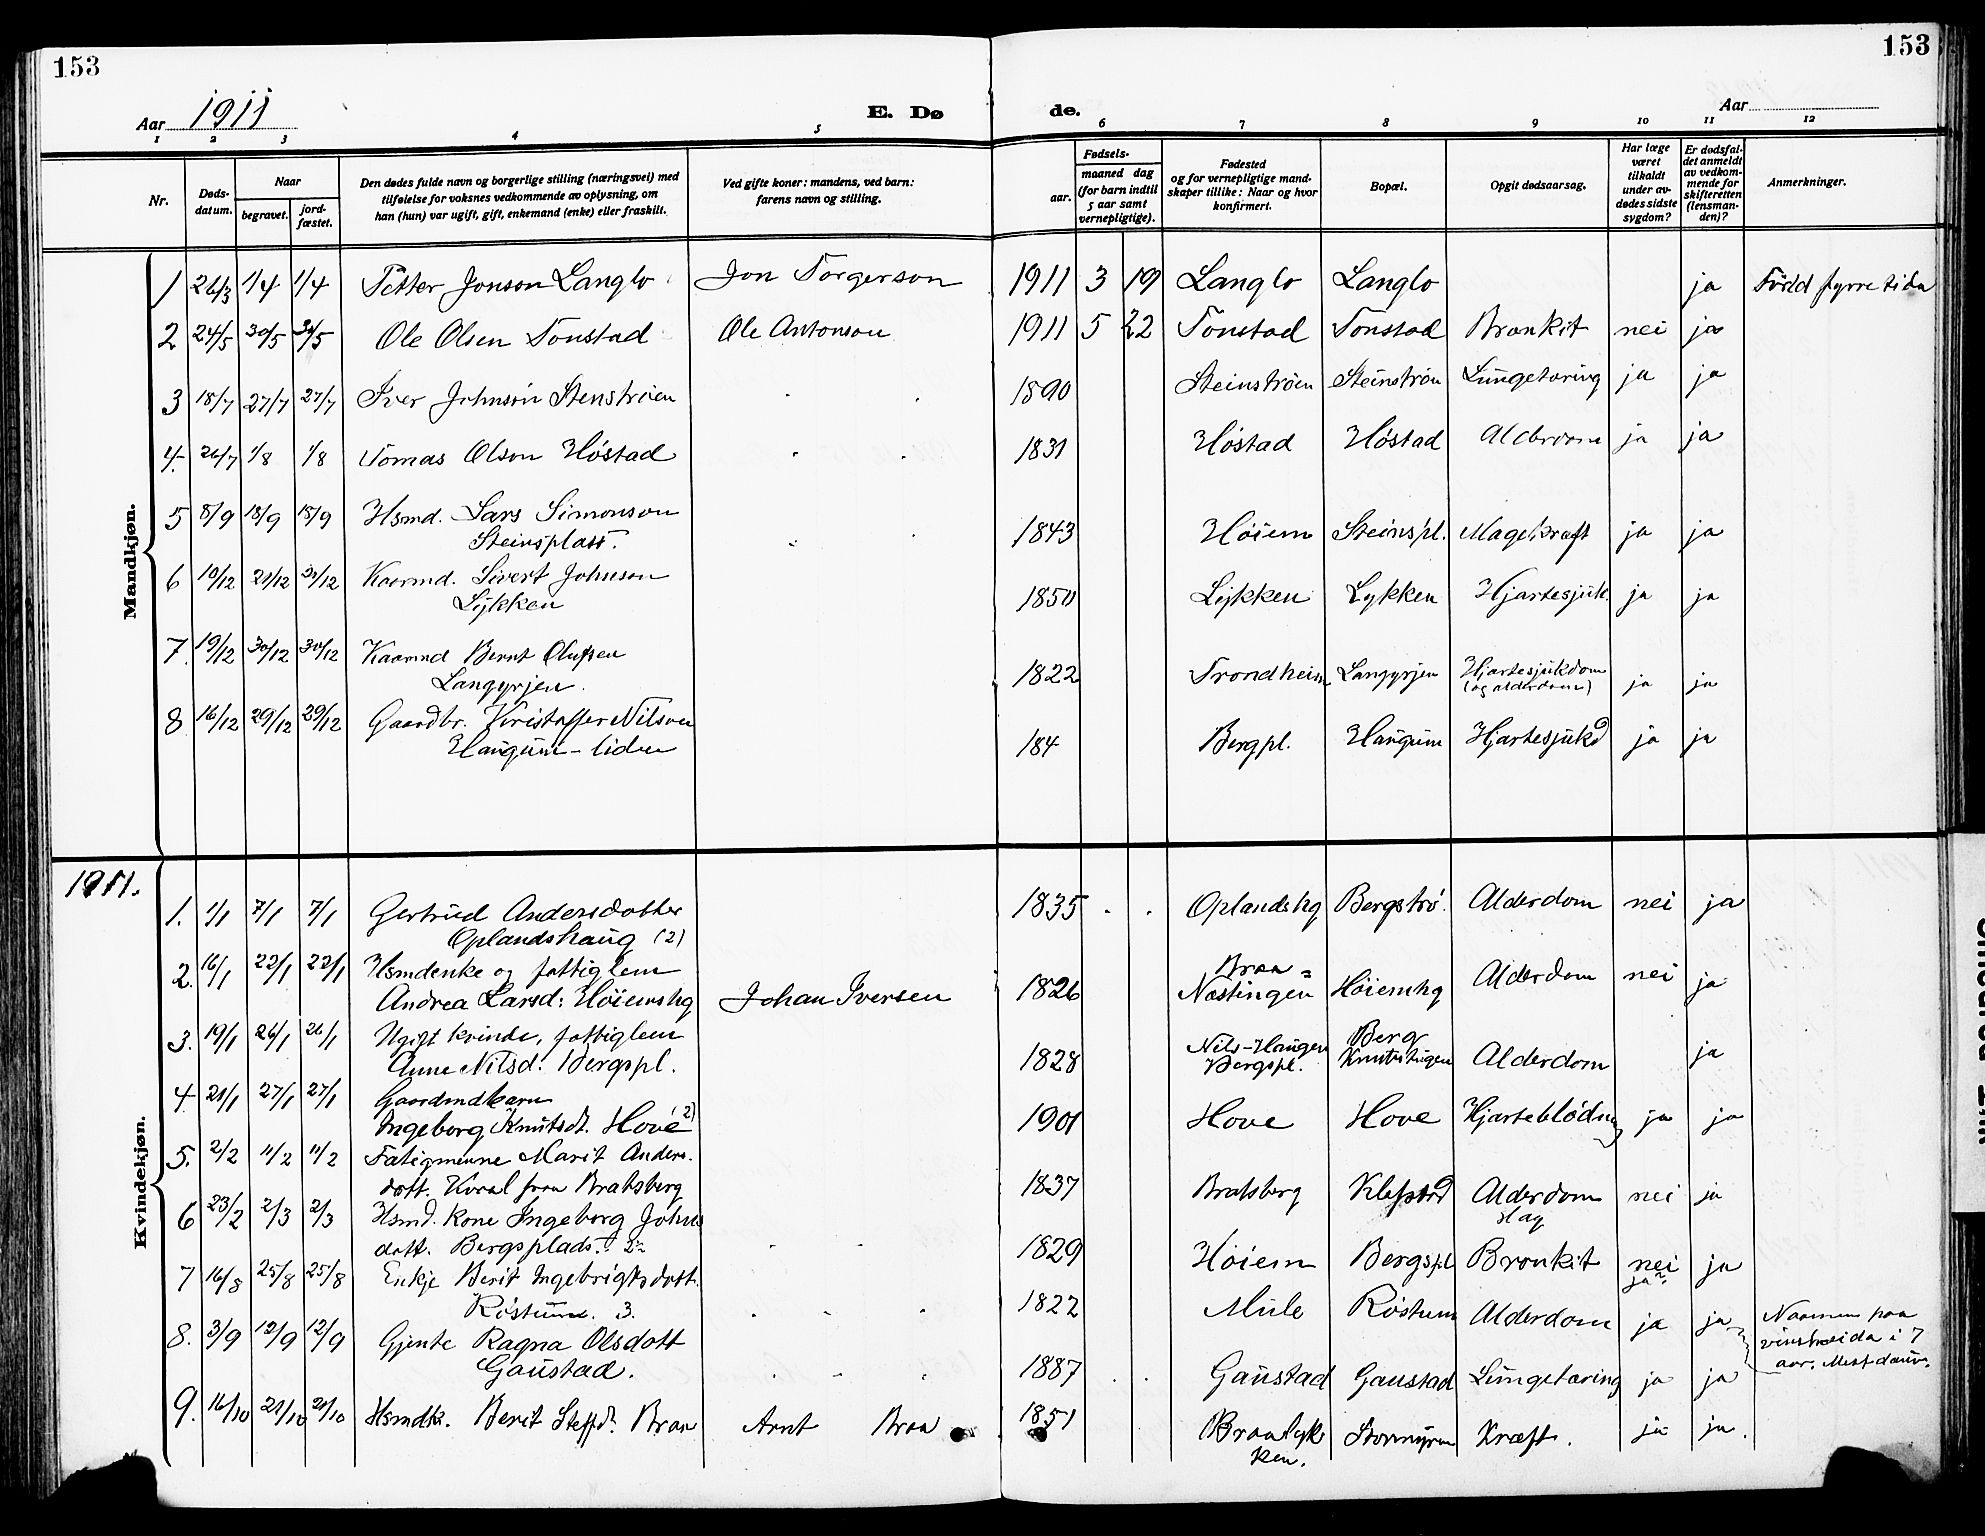 153
153
Aar 1911
E. Dø
de.
Aar
1 2 3 4 5 6 7 8 9 10 11 12
Nr.
Døds-
datum.
Naar
begravet.
jord-
fæstet.
Den dødes fulde navn og borgerlige stilling (næringsvei) med
tilføielse for voksnes vedkommende av oplysning, om
han (hun) var ugift, gift, enkemand (enke) eller fraskilt.
Ved gifte koner: mandens, ved barn:
farens navn og stilling.
Fødsels-
aar.
maaned dag
(for barn indtil
5 aar samt
vernepligtige).
Fødested
og for vernepligtige mand-
skaper tillike: Naar og hvor
konfirmert.
Bopæl.
Opgit dødsaarsag.
Har læge
været
tilkaldt
under av-
dødes sidste
sygdom?
Er dødsfal-
det anmeldt
av vedkom-
mende for
skifteretten
(lensman-
den)?
Anmerkninger.
Mandkjøn.
1 26/3 1/4 1/4 Petter Jonson Langlo Jon Torgerson 1911 3 19 Langlo Langlo ja Född fyrre tida
2 24/5 30/5 30/5 Ole Olsen Tonstad Ole Antonson 1911 5 22 Tonstad Tonstad Bronkit nei ja
3 18/7 27/7 27/7 Iver Johnson Stenstrøen 1890 Steinstrøen Steinstrøn Lungetæring ja ja
4. 26/7 1/8 1/8 Tomas Olson Høstad 1831 Høstad Høstad Alderdom ja ja
5 8/9 18/9 18/9 Hsmd. Lars Simonson
Steinsplass. 1843 Høiem Steinspl. Magekræft ja ja
6 19/12 21/12 31/12 Kaarmd. Sivert Johnson
Lykken 1850 Lykken Lykken Hjartesjuk. ja ja
7. 19/12 30/12 30/12 Kaarmd Bernt Olufsen
Langyrjen. 1822 Trondheim Langyrjen Hjartesjukdom
(og alderdom) ja ja
8 16/12 29/12 29/12 Gaardbr. Kristoffer Nilsen
Haugum-liden 184 Bergpl. Haugum Hjartesjukd ja ja
1911.
Kvindekjøn.
1. 1/1 7/1 7/1 Gertrud Andersdotter
Oplandshaug (2) 1835 Oplandshg Bergstrø. Alderdom nei ja
2. 16/1 22/1 22/1 Hsmdenke og fattiglem
Andrea Larsd: Høiemshg Johan Iversen 1826 Braa=
Nøstingen Høiemhg Alderdom nei ja
3. 19/1 26/1 26/1 Ugift kvinde, fattiglem
Anne Nilsd: Bergspl. 1828 Nils-Haugen
Bergspl. Berg
Knutstugen Alderdom ja
4. 21/1 27/1 27/1 Gaardmdbarn
Ingeborg Knutsd. Hove 2) 1901 Hove Hove Hjarteblødning ja ja
5. 2/2 11/2 11/2 Marit Anders.
dott. Kvaal fraa Bratsberg 1837 Bratsberg Klefstad Alderdom nei ja
6 23/2 2/3 2/3 Hsmd. kone Ingeborg Johns
dott. Bergsplads. 1829 Høiem Bergspl Bronkit nei ja
7 16/8 25/8 25/8 Enkje Berit Ingebrigtsdott.
Røstum. 3. 1822 Mule Røstum Alderdom ja ja
8. 3/9 12/9 12/9 Gjente Ragna Olsdott
Gaustad. 1887 Gaustad Gaustad Lungetæring ja ja
aar.
9. 16/10 21/10 21/10 Hsmdk. Berit Steffd. Braa Arnt Braa 1851 Braalyk
ken. Kræft. ja ja.